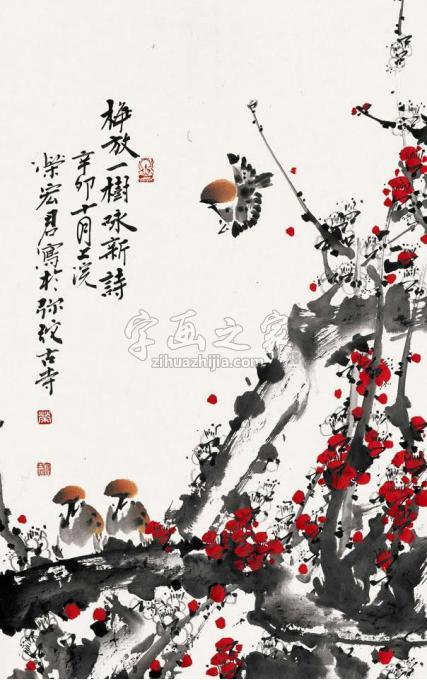 梅放一樹咏新詩
辛卯十月上浣
榮宏君寫於弥陀古寺
字画之家
zihuazhijia.com